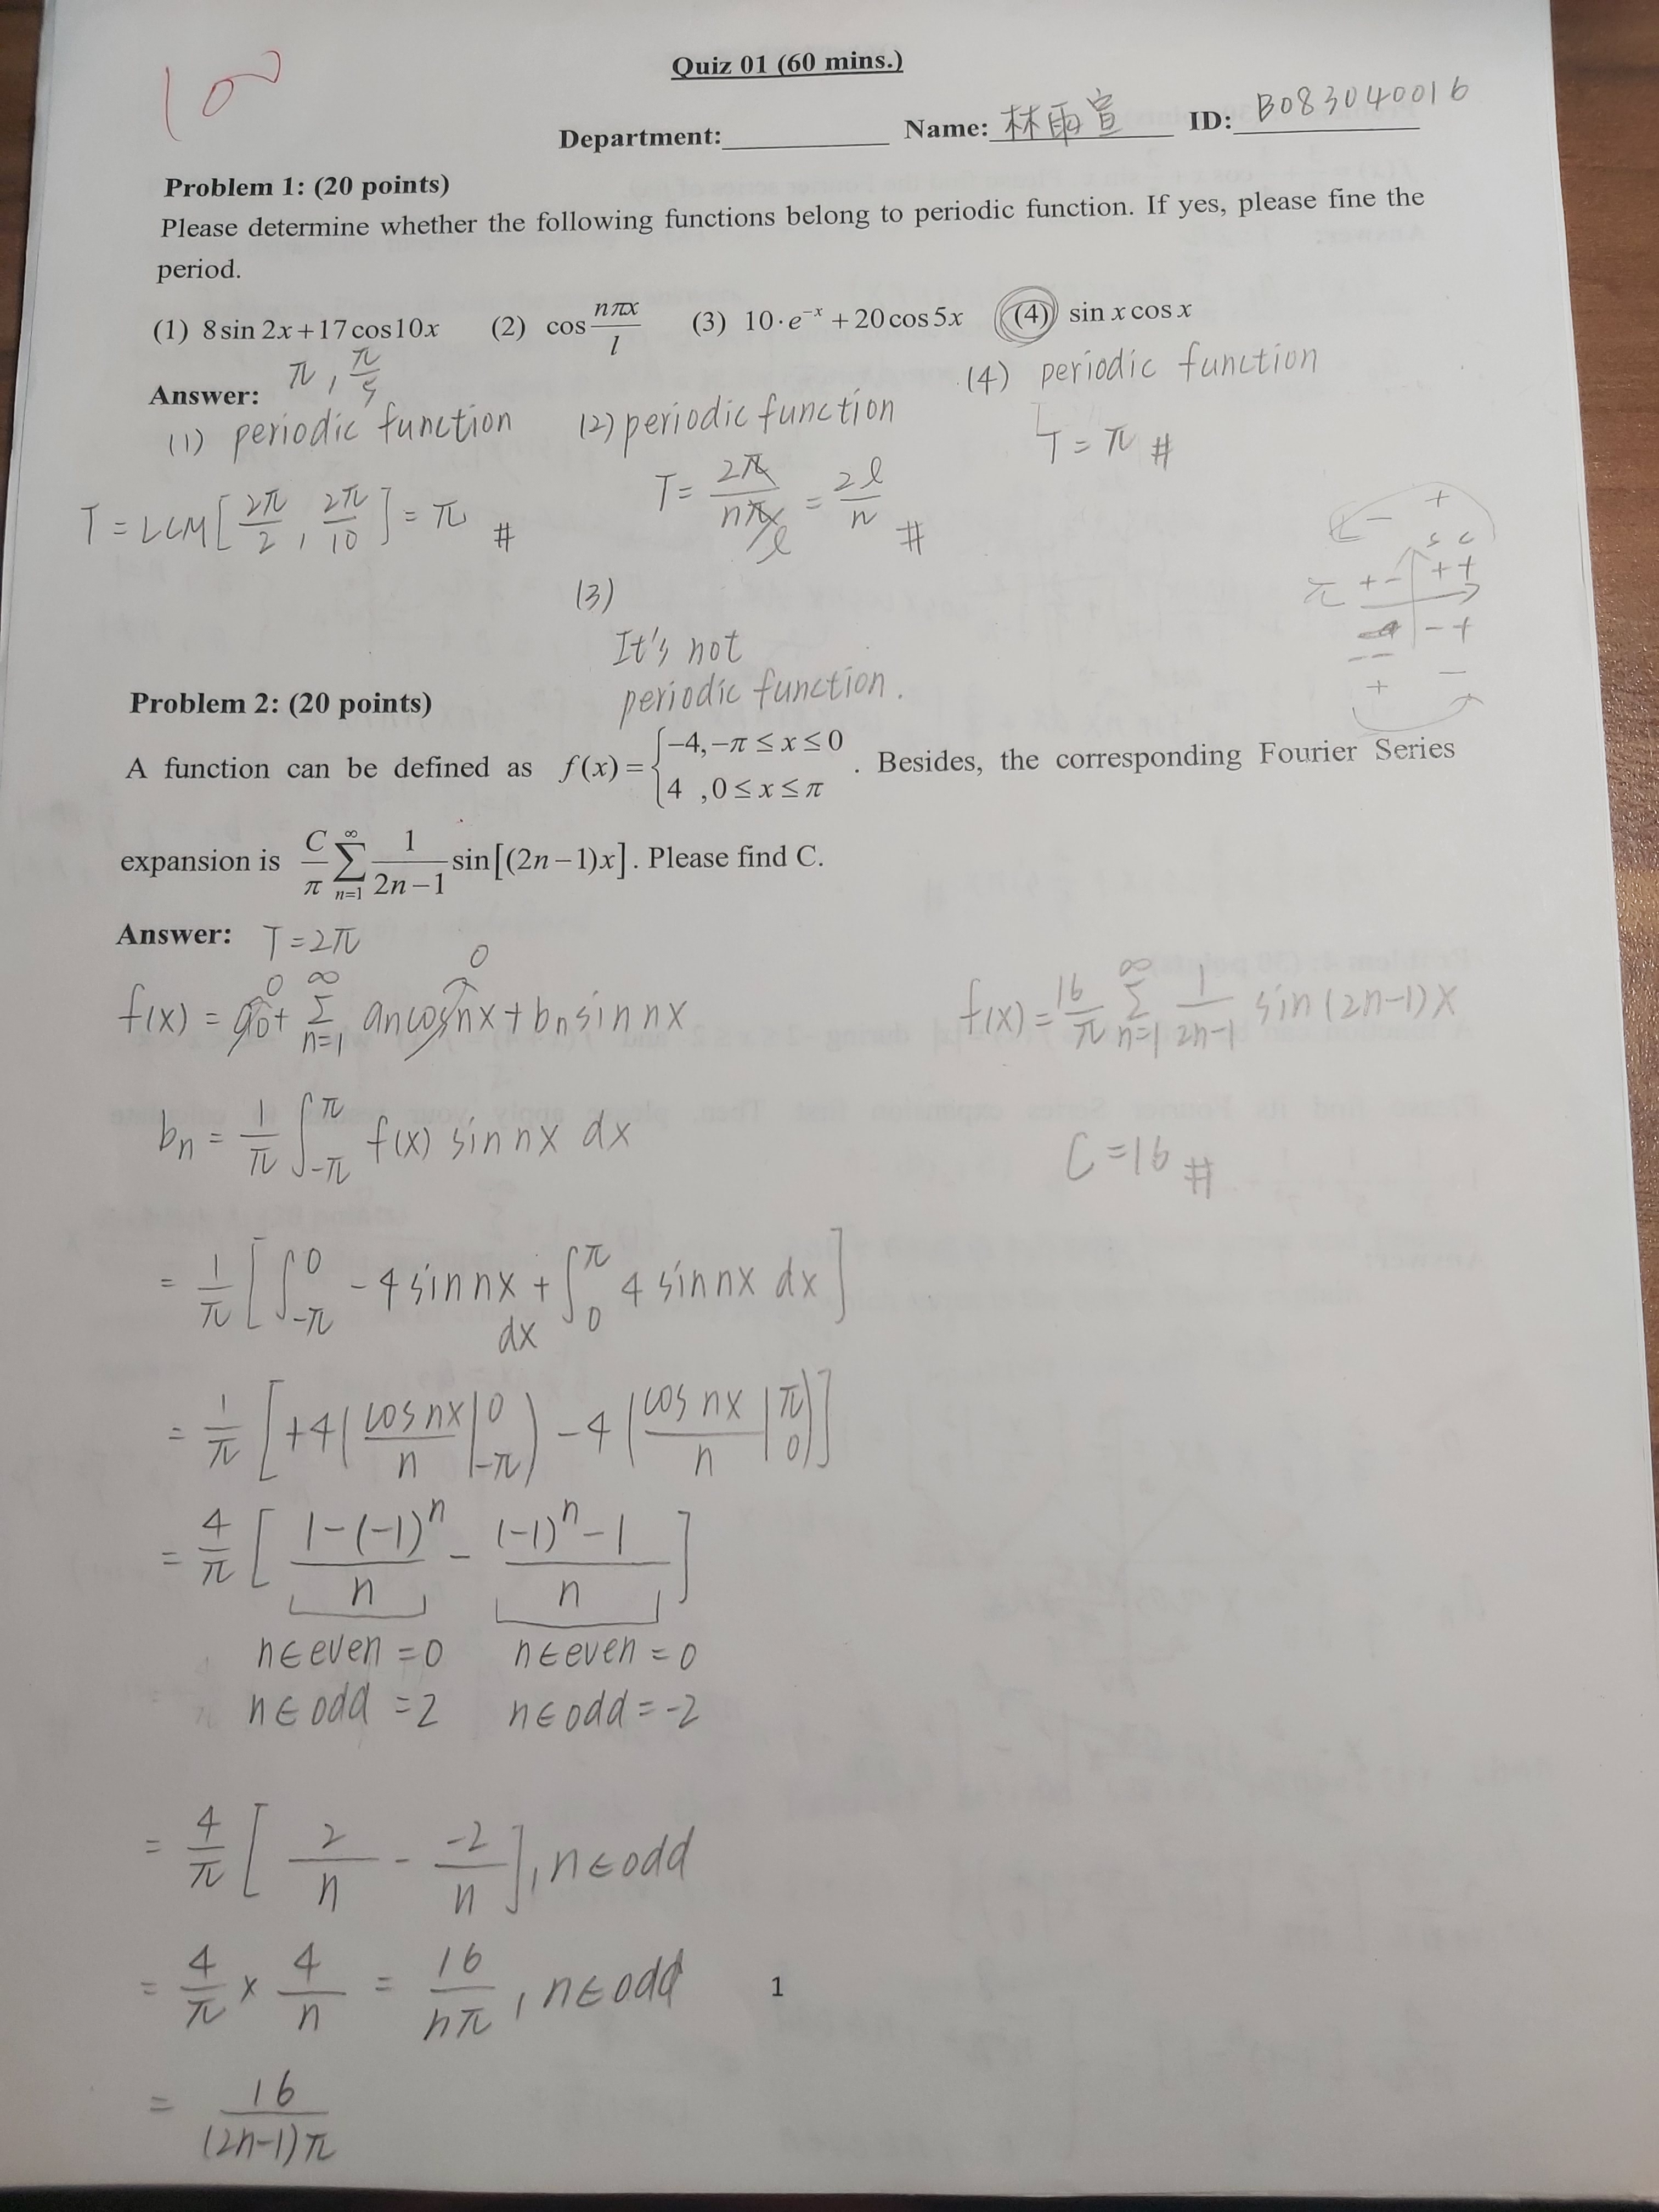 100
Quiz 01 (60 mins.)
Department:__________ Name: 林雨宣 ID: B083040016
Problem 1: (20 points)
Please determine whether the following functions belong to periodic function. If yes, please fine the
period.
(1) 8sin 2x+17cos10x (2) cos nπx/l (3) 10·e^-x +20cos5x (4) sin x cos x
Answer: π, π/5
(1) periodic function (2) periodic function (4) periodic function
T = LCM[2π/2, 2π/10] = π # T = 2π/(nπ/l) = 2l/n # T = π #
- +
s c
π +- ++
-- -+
+ -
(3)
It's not
periodic function.
Problem 2: (20 points)
A function can be defined as f(x)={-4,-π≤x≤0
4 ,0≤x≤π . Besides, the corresponding Fourier Series
expansion is C/π ∑_{n=1}^{∞} 1/(2n-1) sin[(2n-1)x]. Please find C.
Answer: T=2π
f(x) = a0 + ∑_{n=1}^{∞} an cos nx + bn sin nx
0 0
f(x) = 16/π ∑_{n=1}^{∞} 1/(2n-1) sin(2n-1)x
bn = 1/π ∫_{-π}^{π} f(x) sin nx dx
C=16 #
= 1/π [∫_{-π}^{0} -4 sin nx dx + ∫_{0}^{π} 4 sin nx dx]
= 1/π [+4(cos nx/n |_{-π}^{0}) - 4(cos nx/n |_{0}^{π})]
= 4/π [(1-(-1)^n)/n - ((-1)^n-1)/n]
n∈even = 0 n∈even = 0
n∈odd = 2 n∈odd = -2
= 4/π [2/n - -2/n], n∈odd
= 4/π × 4/n = 16/nπ, n∈odd
1
= 16/(2n-1)π